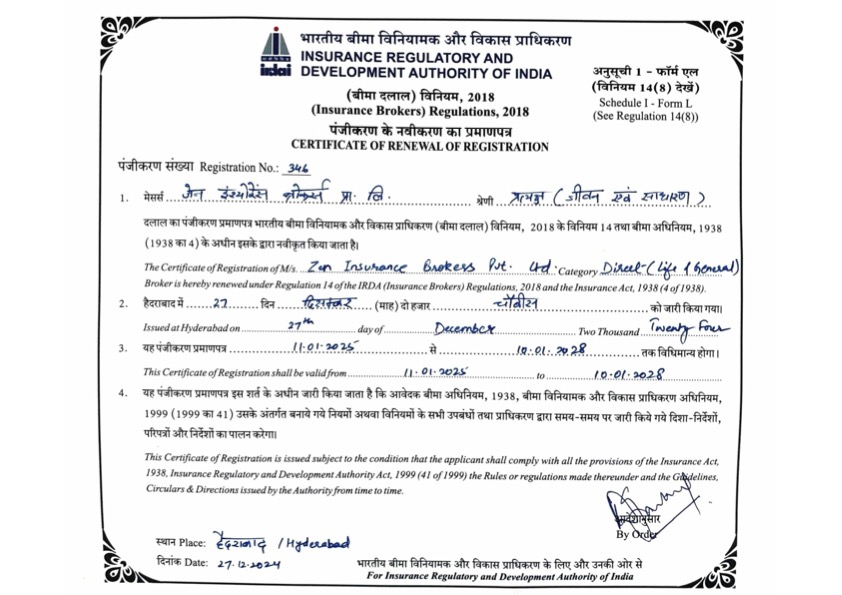 भारतीय बीमा विनियामक और विकास प्राधिकरण
INSURANCE REGULATORY AND
DEVELOPMENT AUTHORITY OF INDIA
irdai
अनुसूची 1 - फॉर्म एल
(विनियम 14(8) देखें)
Schedule I - Form L
(See Regulation 14(8))
(बीमा दलाल) विनियम, 2018
(Insurance Brokers) Regulations, 2018
पंजीकरण के नवीकरण का प्रमाणपत्र
CERTIFICATE OF RENEWAL OF REGISTRATION
पंजीकरण संख्या Registration No.: 346
1. मेसर्स जेन इंश्योरेंस ब्रोकर्स प्रा. लि. श्रेणी प्रत्यक्ष (जीवन एवं साधारण)
दलाल का पंजीकरण प्रमाणपत्र भारतीय बीमा विनियामक और विकास प्राधिकरण (बीमा दलाल) विनियम, 2018 के विनियम 14 तथा बीमा अधिनियम, 1938
(1938 का 4) के अधीन इसके द्वारा नवीकृत किया जाता है।
The Certificate of Registration of M/s. Zen Insurance Brokers Pvt. Ltd. Category Direct (Life & General)
Broker is hereby renewed under Regulation 14 of the IRDA (Insurance Brokers) Regulations, 2018 and the Insurance Act, 1938 (4 of 1938).
2. हैदराबाद में 27 दिन दिसम्बर (माह) दो हजार चौबीस को जारी किया गया।
Issued at Hyderabad on 27th day of December Two Thousand Twenty Four
3. यह पंजीकरण प्रमाणपत्र 11.01.2025 से 10.01.2028 तक विधिमान्य होगा।
This Certificate of Registration shall be valid from 11.01.2025 to 10.01.2028
4. यह पंजीकरण प्रमाणपत्र इस शर्त के अधीन जारी किया जाता है कि आवेदक बीमा अधिनियम, 1938, बीमा विनियामक और विकास प्राधिकरण अधिनियम,
1999 (1999 का 41) उसके अंतर्गत बनाये गये नियमों अथवा विनियमों के सभी उपबंधों तथा प्राधिकरण द्वारा समय-समय पर जारी किये गये दिशा-निर्देशों,
परिपत्रों और निर्देशों का पालन करेगा।
This Certificate of Registration is issued subject to the condition that the applicant shall comply with all the provisions of the Insurance Act,
1938, Insurance Regulatory and Development Authority Act, 1999 (41 of 1999) the Rules or regulations made thereunder and the Guidelines,
Circulars & Directions issued by the Authority from time to time.
आदेशानुसार
By Order
स्थान Place: हैदराबाद / Hyderabad
दिनांक Date: 27.12.2024
भारतीय बीमा विनियामक और विकास प्राधिकरण के लिए और उनकी ओर से
For Insurance Regulatory and Development Authority of India